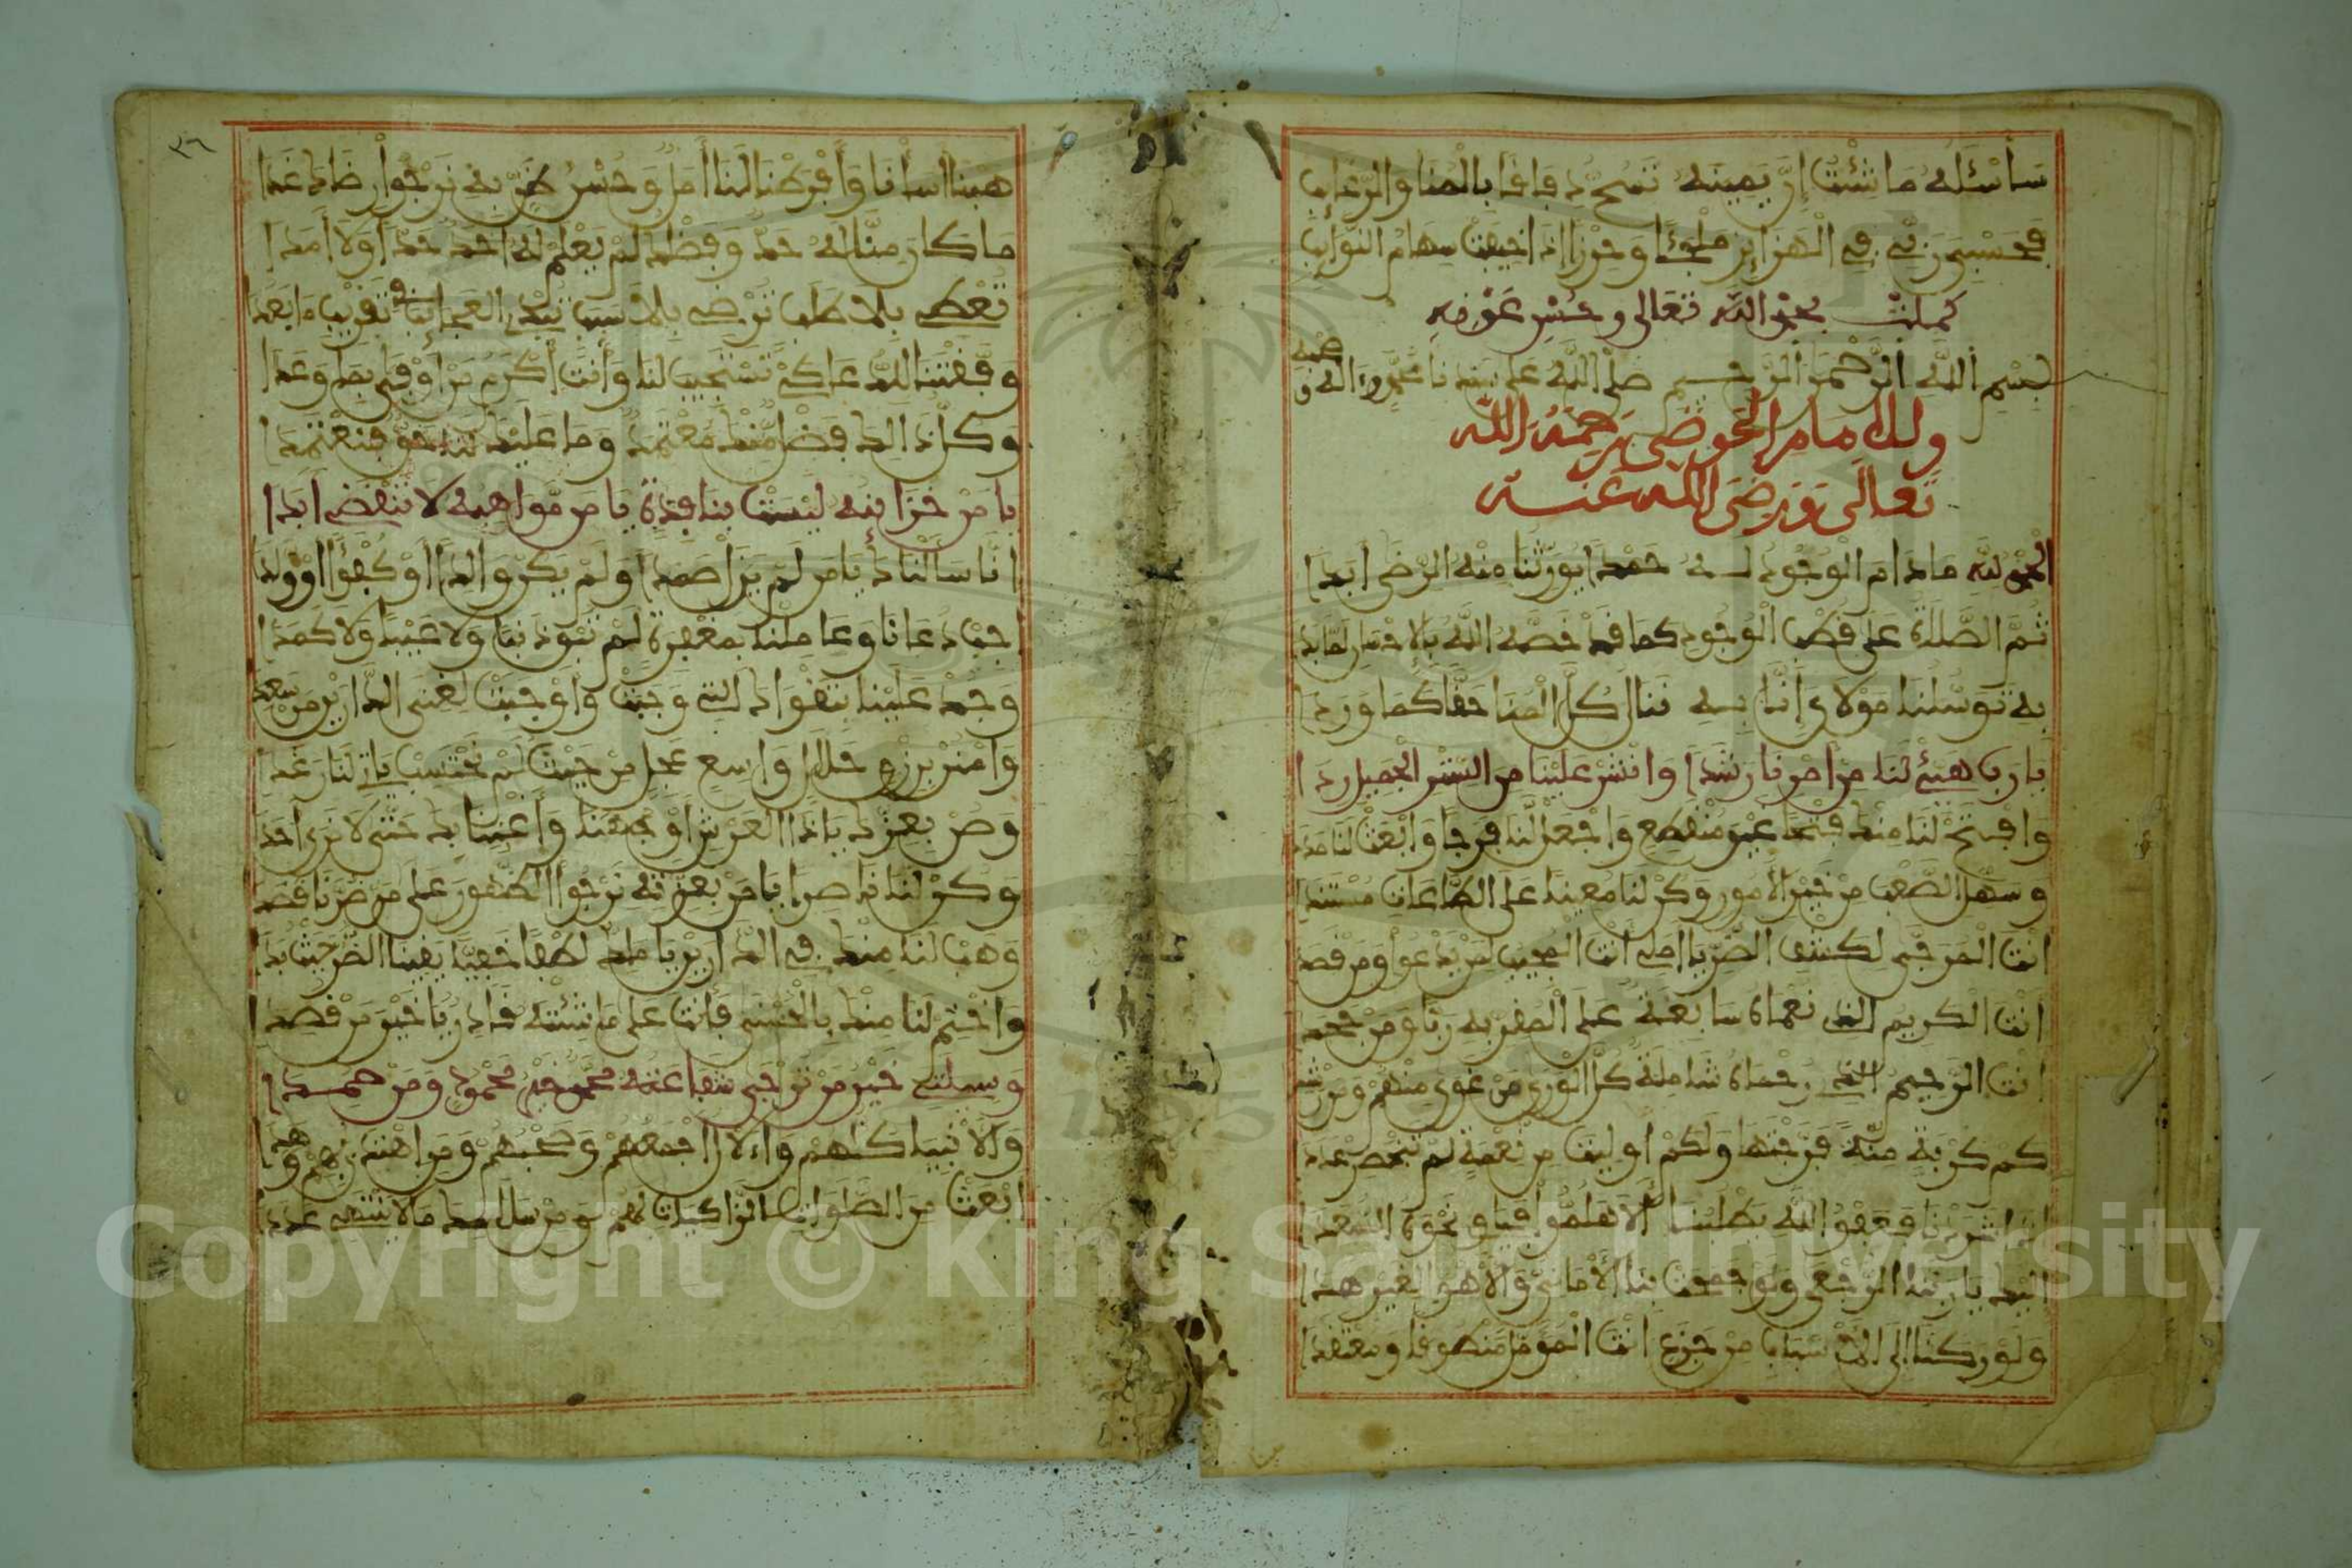 سَأَسْئَلُهُ مَا شِئْتُ إِنَّ يَمِينَهُ تَسُحُّ دِفَاقًا بِالْمُنَا وَالرَّغَائِبِ
فَحَسْبِي رَبِّي فِي الْهَزَائِزِ مَلْجَئًا وَحِرْزًا إِذَا خِيفَتْ سِهَامُ النَّوَائِبِ
كملت بحمد الله تعالى وحسن عونه
بسم الله الرحمن الرحيم صلى الله على سيدنا محمد وءاله وصحبه
وللامام الحوضي رحمه الله
تعالى ورضى الله عنه
الحمد لله مادام الوجود له حمدا يورثنا منه الرضى ابدا
ثم الصلاة على قطب الوجود كما قد خصه الله بالاحسان
به توسلنا مولاى إننا به ننال كل المنا حقا كما وردا
يا رب هيئ لنا من امرنا رشدا وانشر علينا من الستر الجميل ردا
وافتح لنا منك فتحا غير منقطع واجعل لنا فرجا وابعث لنا مددا
وسهل الصعب من خير الأمور وكن لنا معينا على الطاعات مستندا
انت المرجى لكشف الضر يا املى انت المجيب لمن يدعوا ومن قصدا
انت الكريم الذى نعماه سابغة على المقر به ربا ومن جحدا
انت الرحيم الذى رحماه شاملة كل الورى من غوى منهم ومن رشدا
كم كربة منه فرجتها ولكم اوليت من نعمة لم تنحصر عددا
اليك يا ربنا الرجعى
ولو ركنا إلى الاسباب من جزع انت المؤمل
هبنا اسأنا وأفرطنا لنا أمل وحسن ظن به نرجوا رضاك غدا
ما كان منا له حد وفضلك لم يعلم له احد حدا ولا أمدا
تعطى بلا طلب ترضى بلا سبب تبدى العجائب تقريب ما بعدا
وفقتنا للدعا كى تستجيب لنا وأنت أكرم من أوفى بما وعدا
وكل ذالك فضل منك معتمد وما عليك لنا حق فنعتمدا
يا من خزاينه ليست بنافدة يا من مواهبه لا تنقضى ابدا
انا سألناك يا من لم يزل صمدا ولم يكن والدا أو كفؤا أو ولدا
اجب دعانا وعاملنا بمغفرة لم تبق ذنبا ولا عيبا ولا كمدا
وجد علينا بتقواك التى وجبت وأوجبت لغنى الدارين من سعدا
وامنن برزق حلال واسع عجل من حيث لم نحتسب يأتى لنا رغدا
وصن بعزك يا ذا العرش أوجهنا وأغننا بك حتى لا نرى احدا
وكن لنا ناصرا يا من بعزته نرجوا الظهور على من ضرنا قصدا
وهب لنا منك فى الدارين يا ملك لطفا خفيا يقينا الضر حيث بدا
واختم لنا منك بالحسنى فأنت على ما شئته قادر يا خير من قصدا
وسيلتى خير من ترجى شفاعته محمد خير محمود ومن حمدا
والانبيا كلهم والال اجمعهم وصحبهم ومن اهتدى بهم وهدى
ابعث من الصلوات الزاكيات لهم ومن سلامك ما لا ينتهى عددا
٣٦
Copyright © King Saud University
1957